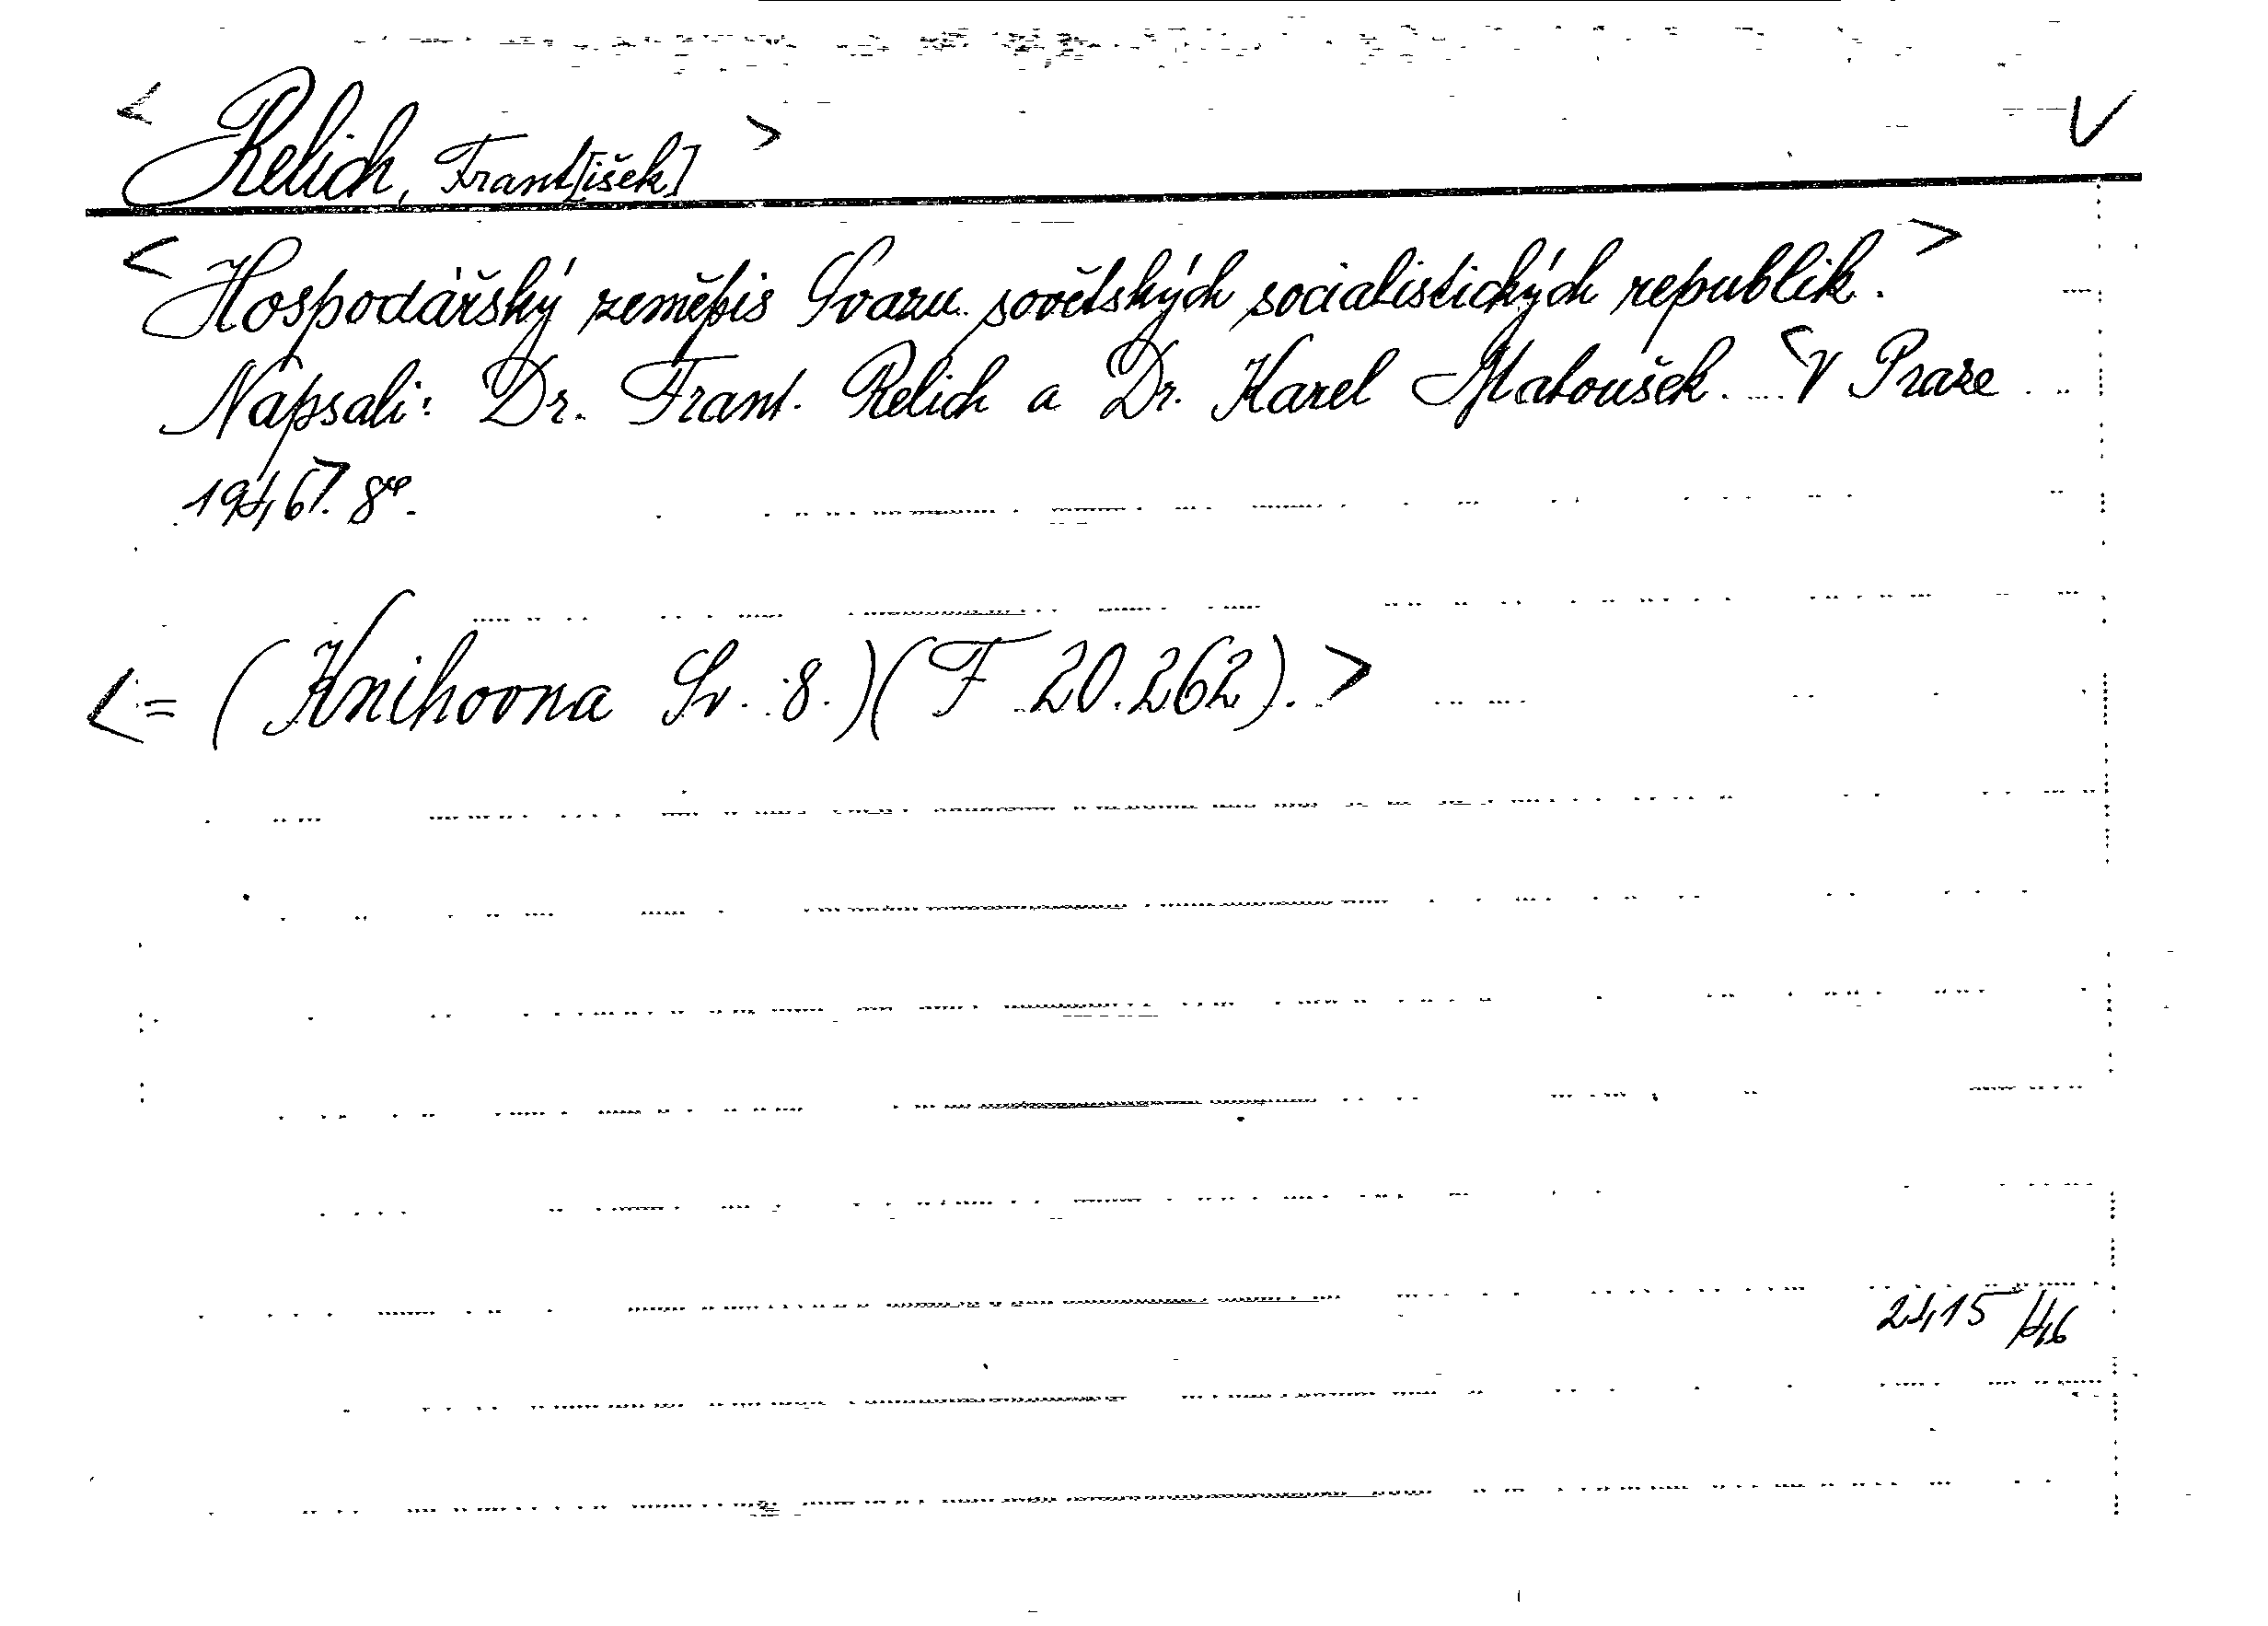 < Relich, Frant[išek] > V
< Hospodářský zeměpis Svazu sovětských socialistických republik. >
Napsali: Dr. Frant. Relich a Dr. Karel Matoušek. < V Praze
1946 >. 8°.
< = (Knihovna Sv. 8.) (F 20.262). >
2415/46